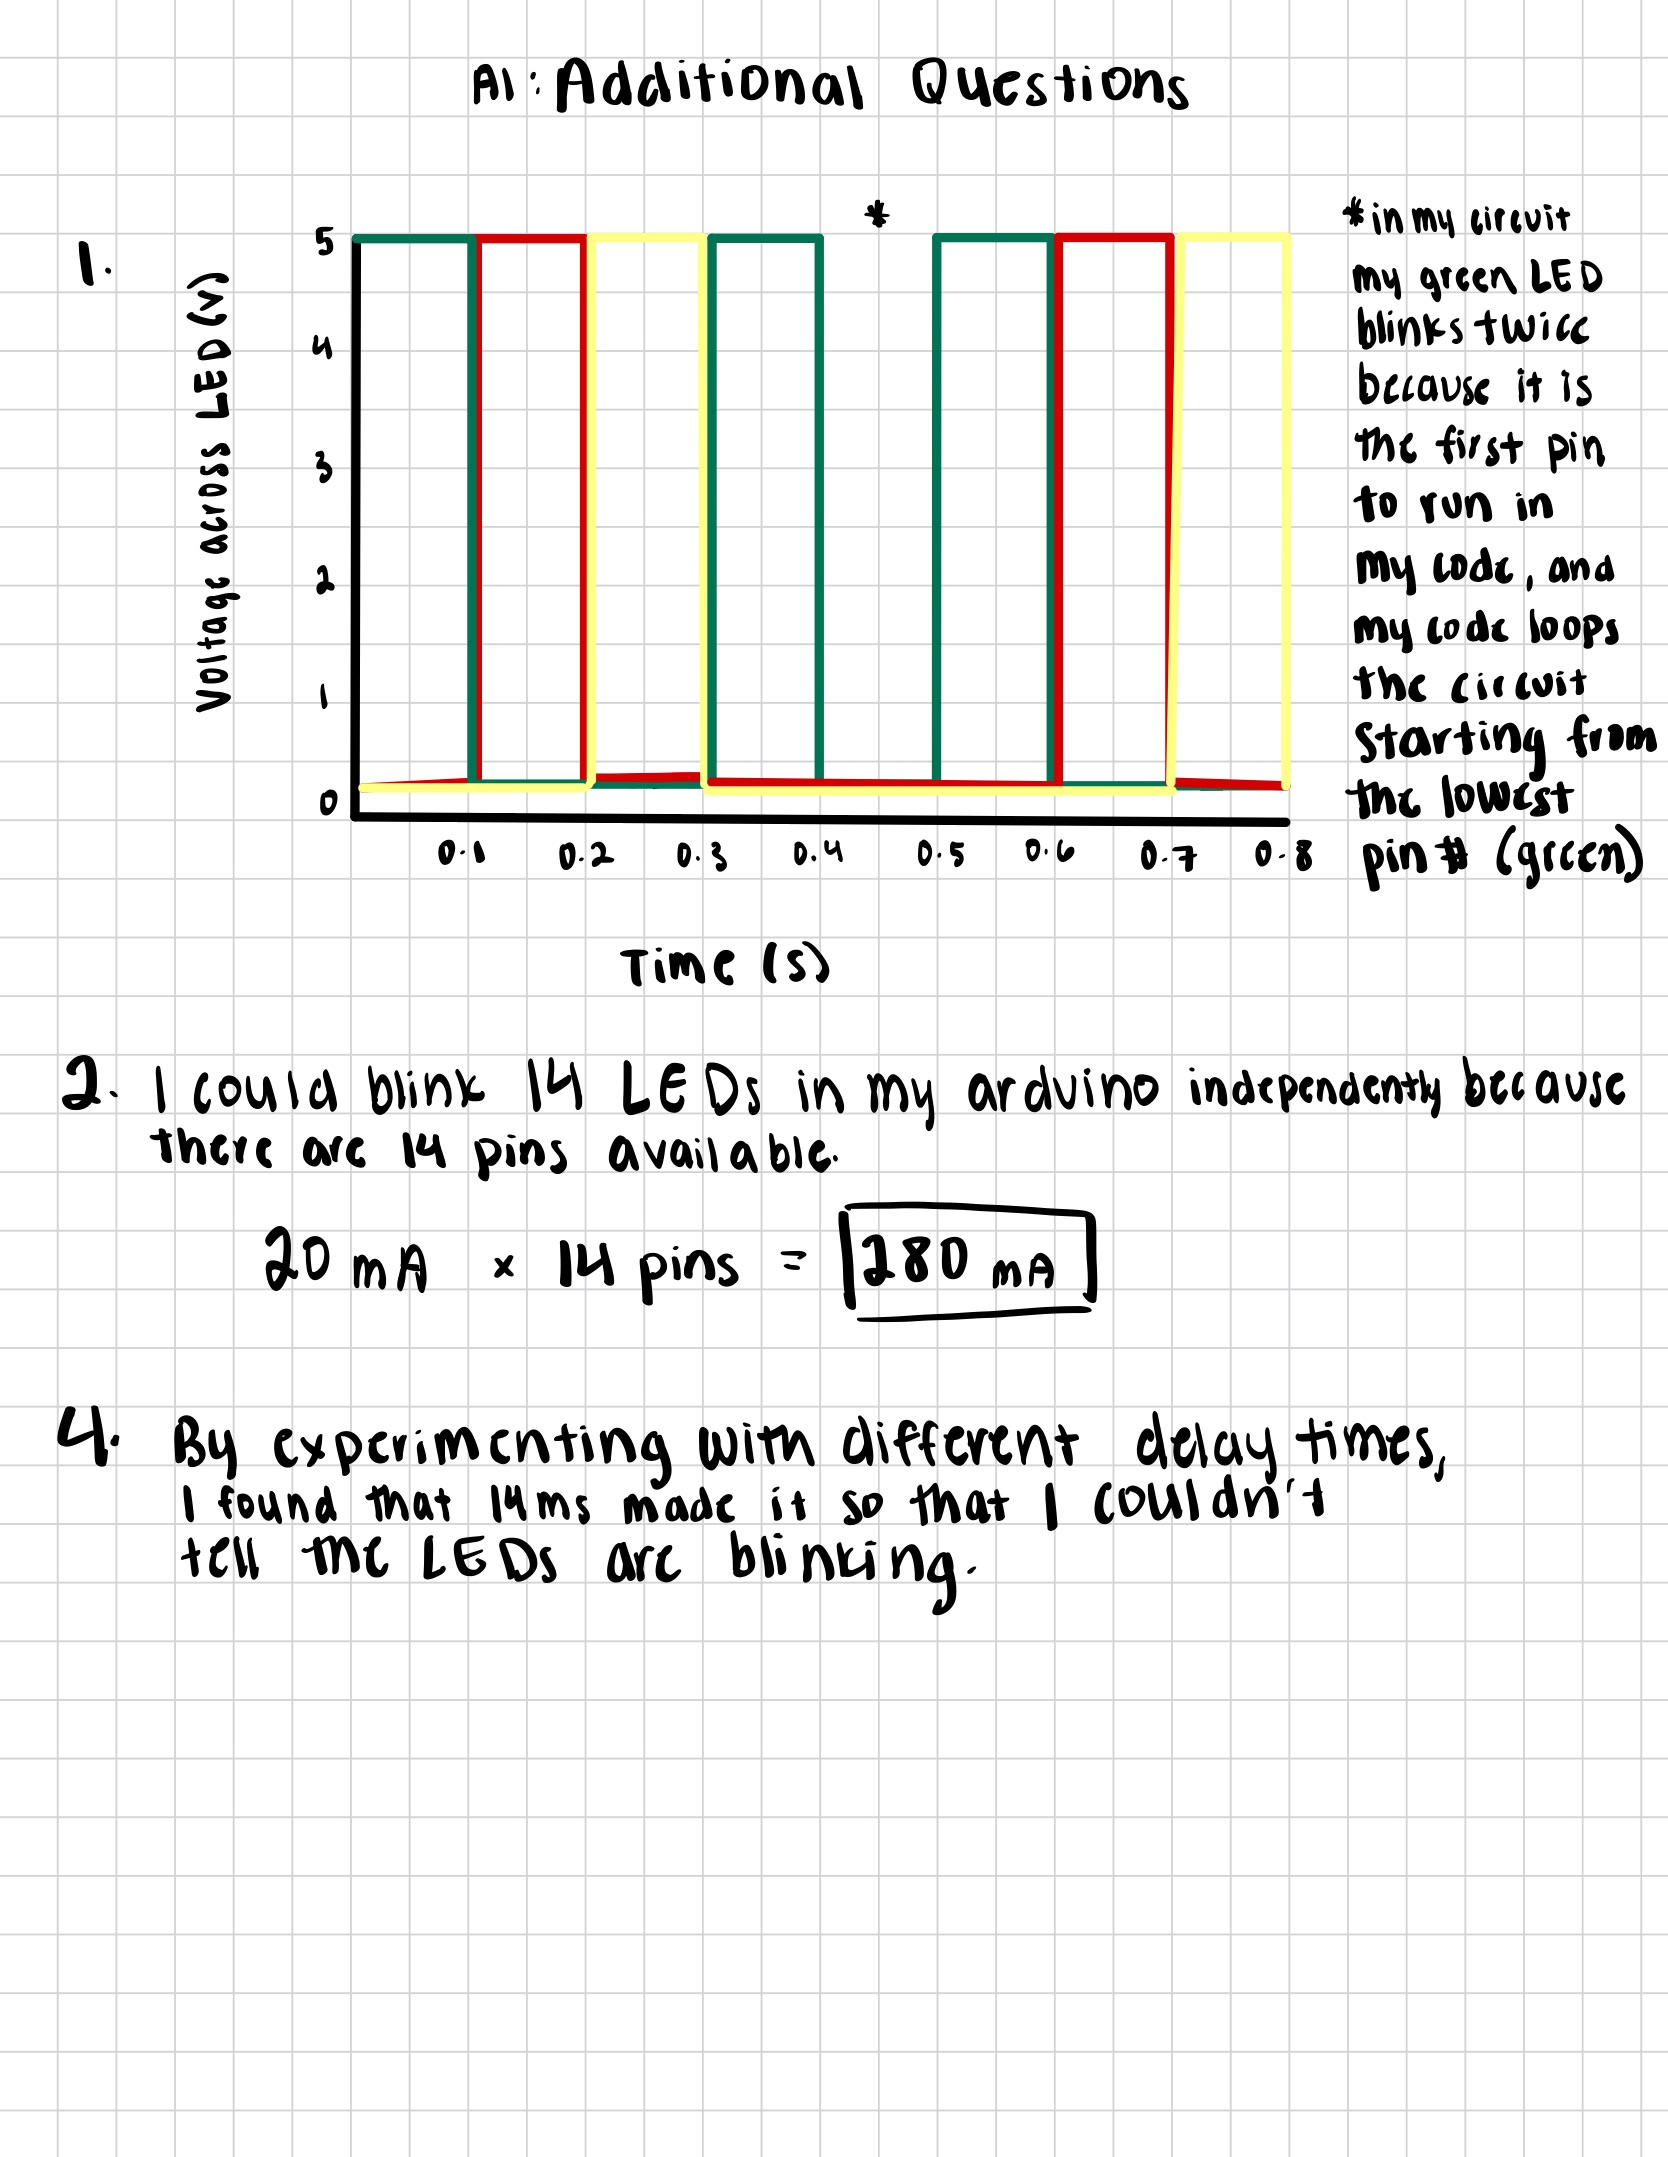 A1: Additional Questions
1.
Voltage across LED (V)
5
4
3
2
1
0
0.1 0.2 0.3 0.4 0.5 0.6 0.7 0.8
Time (s)
*
*in my circuit
my green LED
blinks twice
because it is
the first pin
to run in
my code, and
my code loops
the circuit
starting from
the lowest
pin # (green)
2. I could blink 14 LEDs in my arduino independently because
there are 14 pins available.
20 mA × 14 pins = 280 mA
4. By experimenting with different delay times,
I found that 14ms made it so that I couldn't
tell the LEDs are blinking.